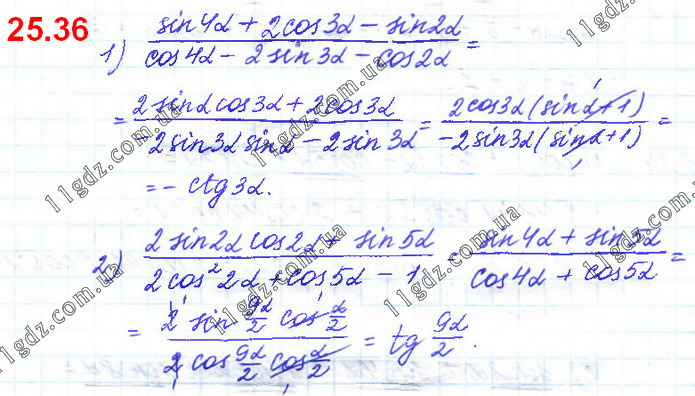 25.36
1) (sin4α + 2cos3α − sin2α)/(cos4α − 2sin3α − cos2α) =
= (2sinα cos3α + 2cos3α)/(−2sin3α sinα − 2sin3α) = (2cos3α(sinα+1))/(−2sin3α(sinα+1)) =
= − ctg3α.
2) (2sin2α cos2α + sin5α)/(2cos²2α + cos5α − 1) = (sin4α + sin5α)/(cos4α + cos5α) =
= (2 sin 9α/2 cos α/2)/(2 cos 9α/2 cos α/2) = tg 9α/2.
11gdz.com.ua
11gdz.com.ua
11gdz.com.ua
11gdz.com.ua
11gdz.com.ua
11gdz.com.ua